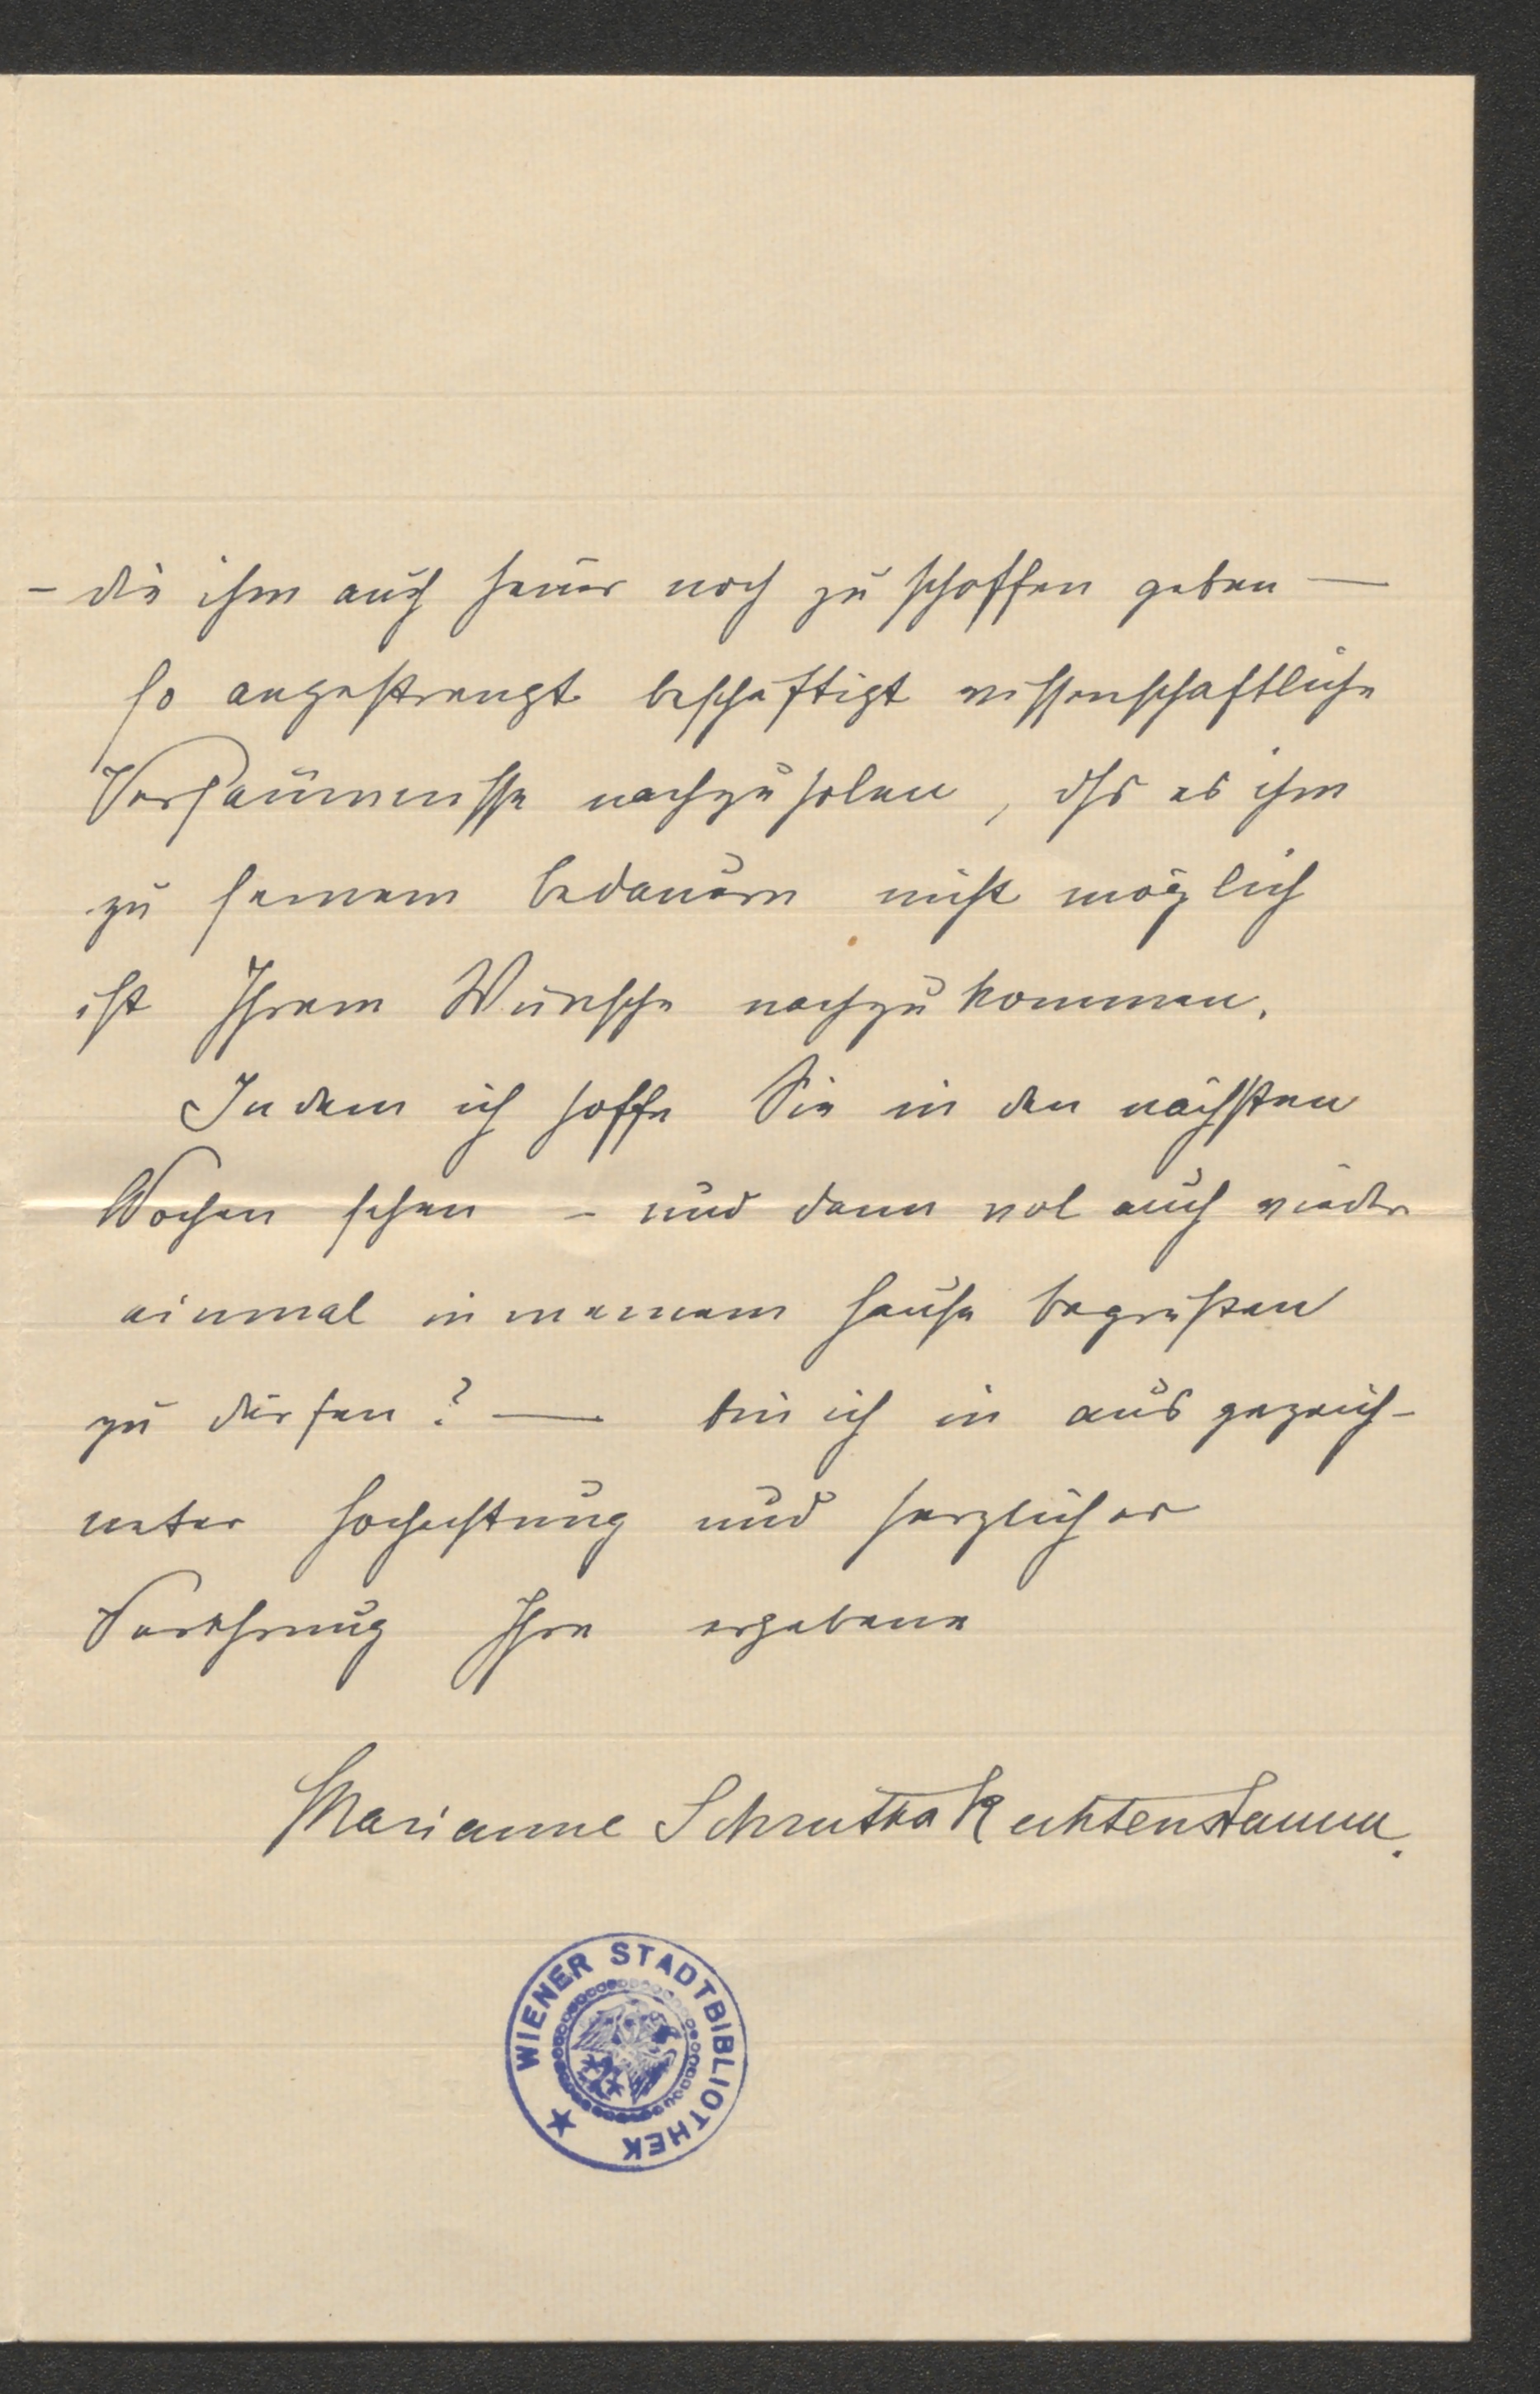 – die ihm auch heuer noch zu schaffen geben —
so angestrengt beschäftigt wissenschaftliche
Versäumnisse nachzuholen, dſs es ihm
zu seinem bedauern nicht möglich
ist Ihrem Wunsche nachzukommen.
Indem ich hoffe Sie in den nächsten
Wochen sehen – und dann wol auch wieder
einmal in meinem Hause begrüßen
zu dürfen? — bin ich in ausgezeich-
neter Hochachtung und herzlicher
Verehrung Ihre ergebene
Marianne Schrutka Rechtenstamm.
WIENER STADTBIBLIOTHEK